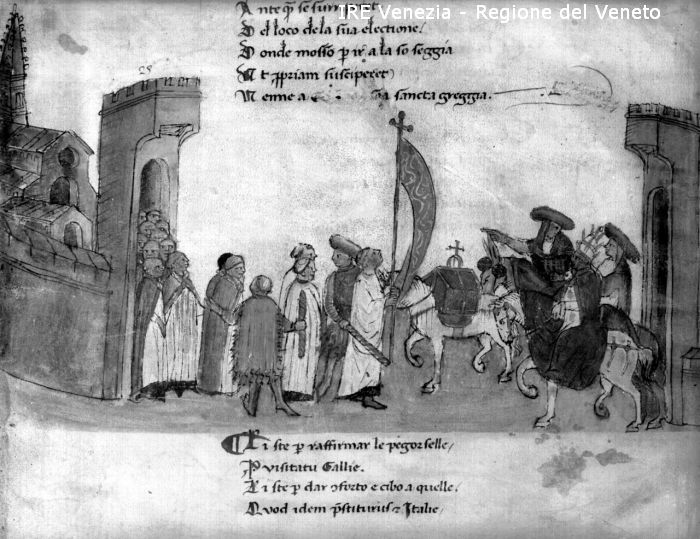 IRE Venezia - Regione del Veneto
Ante q̄ se surr
Del loco de la sua electione.
Donde mosso ꝑ ir a la so seggia
Ut ꝓpriam susciperet
Menne a sancta greggia.
28
isте ꝑ raffirmar le pegorselle/
visitatu Gallie.
iste ꝑ dar ꝯforto e cibo a quelle.
Quod idem p̄stiturus Italie/